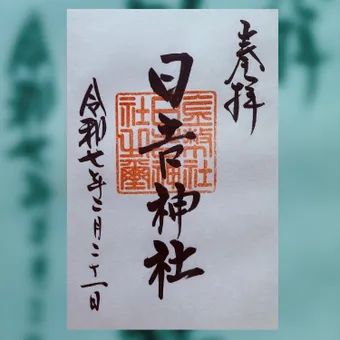 奉拝
日吉神社
令和七年二月二十一日